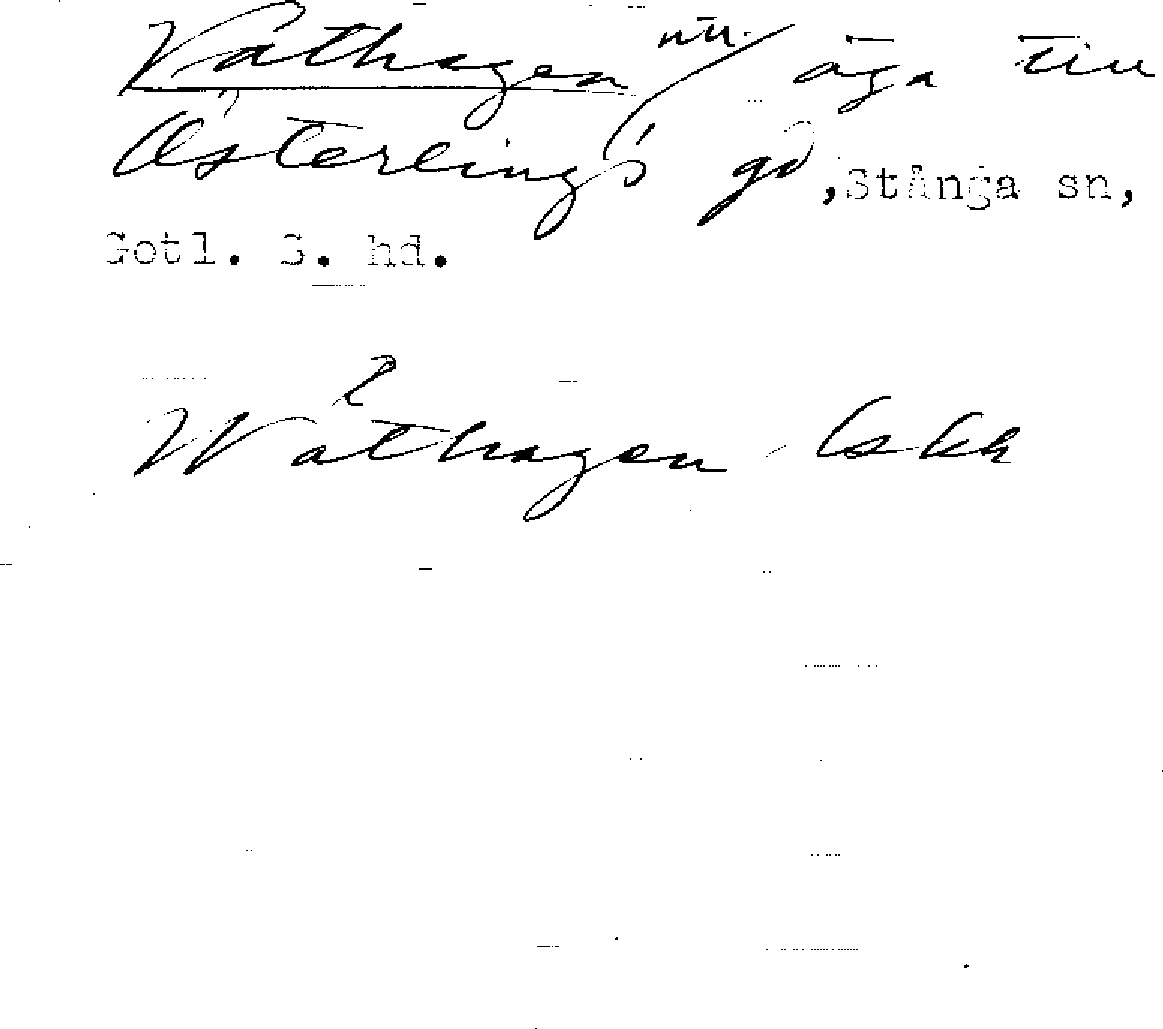 Våthagen äga till
Österlings gd, Stånga sn,
Gotl. S. hd.
Wåthagen